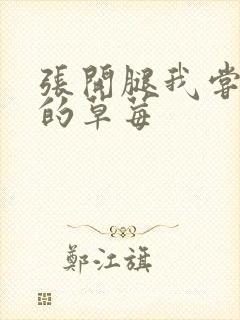 張開腿我嘗
的草莓
鄭江旗